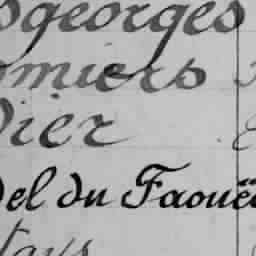 sgeorges
omiers
dier
del du Faouë
tays